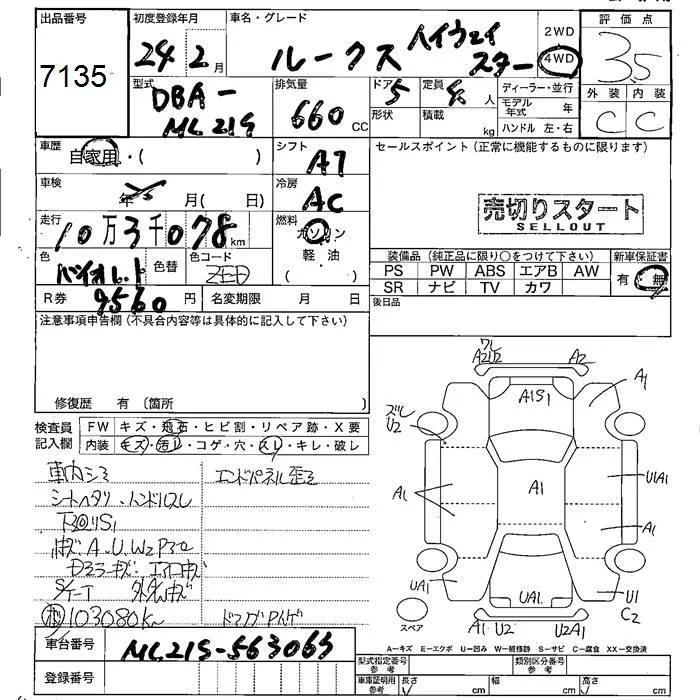 出品番号
7135
初度登録年月
24 2月
車名・グレード
ルークス ハイウェイスター
2WD
4WD
評価点
3.5
外装 内装
C C
型式
DBA-
ML21S
排気量
660 CC
ドア
5
定員
人
形状
積載
kg
ディーラー・並行
モデル年式 年
ハンドル 左・右
車歴
自家用・( )
シフト
AT
セールスポイント(正常に機能するものに限ります)
車検
年 月( 日)
冷房
AC
売切りスタート
SELLOUT
走行
10万3千078km
燃料
ガソリン
軽・油
( )
色
バイオレット
色替
色コード
ZED
装備品(純正品に限り○をつけて下さい)
新車保証書
PS PW ABS エアB AW
有・無
SR ナビ TV カワ
R券 9560円
名変期限 月 日
後日品
注意事項申告欄(不具合内容等は具体的に記入して下さい)
修復歴 有(箇所 )
検査員記入欄
FW キズ・飛石・ヒビ割・リペア跡・X要
内装 キズ・汚レ・コゲ・穴・スレ・キレ・破レ
車内シミ
エンドパネル歪ミ
シートヘタリ・ハンドルスレ
下回りS1
S/T-T
103080km
車台番号 ML21S-563063
登録番号
ワレ
A2U2
A2
A1S1
A1
ズレ
U2
A1
A1
U1A1
A1
UA1
UA1
U1
C2
スペア
A1 U2
U2A1
A-キズ E-エクボ U-凹み W-補修跡 S-サビ C-腐食 XX-交換済
型式指定番号
類別区分番号
車庫証明用参考
長さ cm
幅 cm
高さ cm